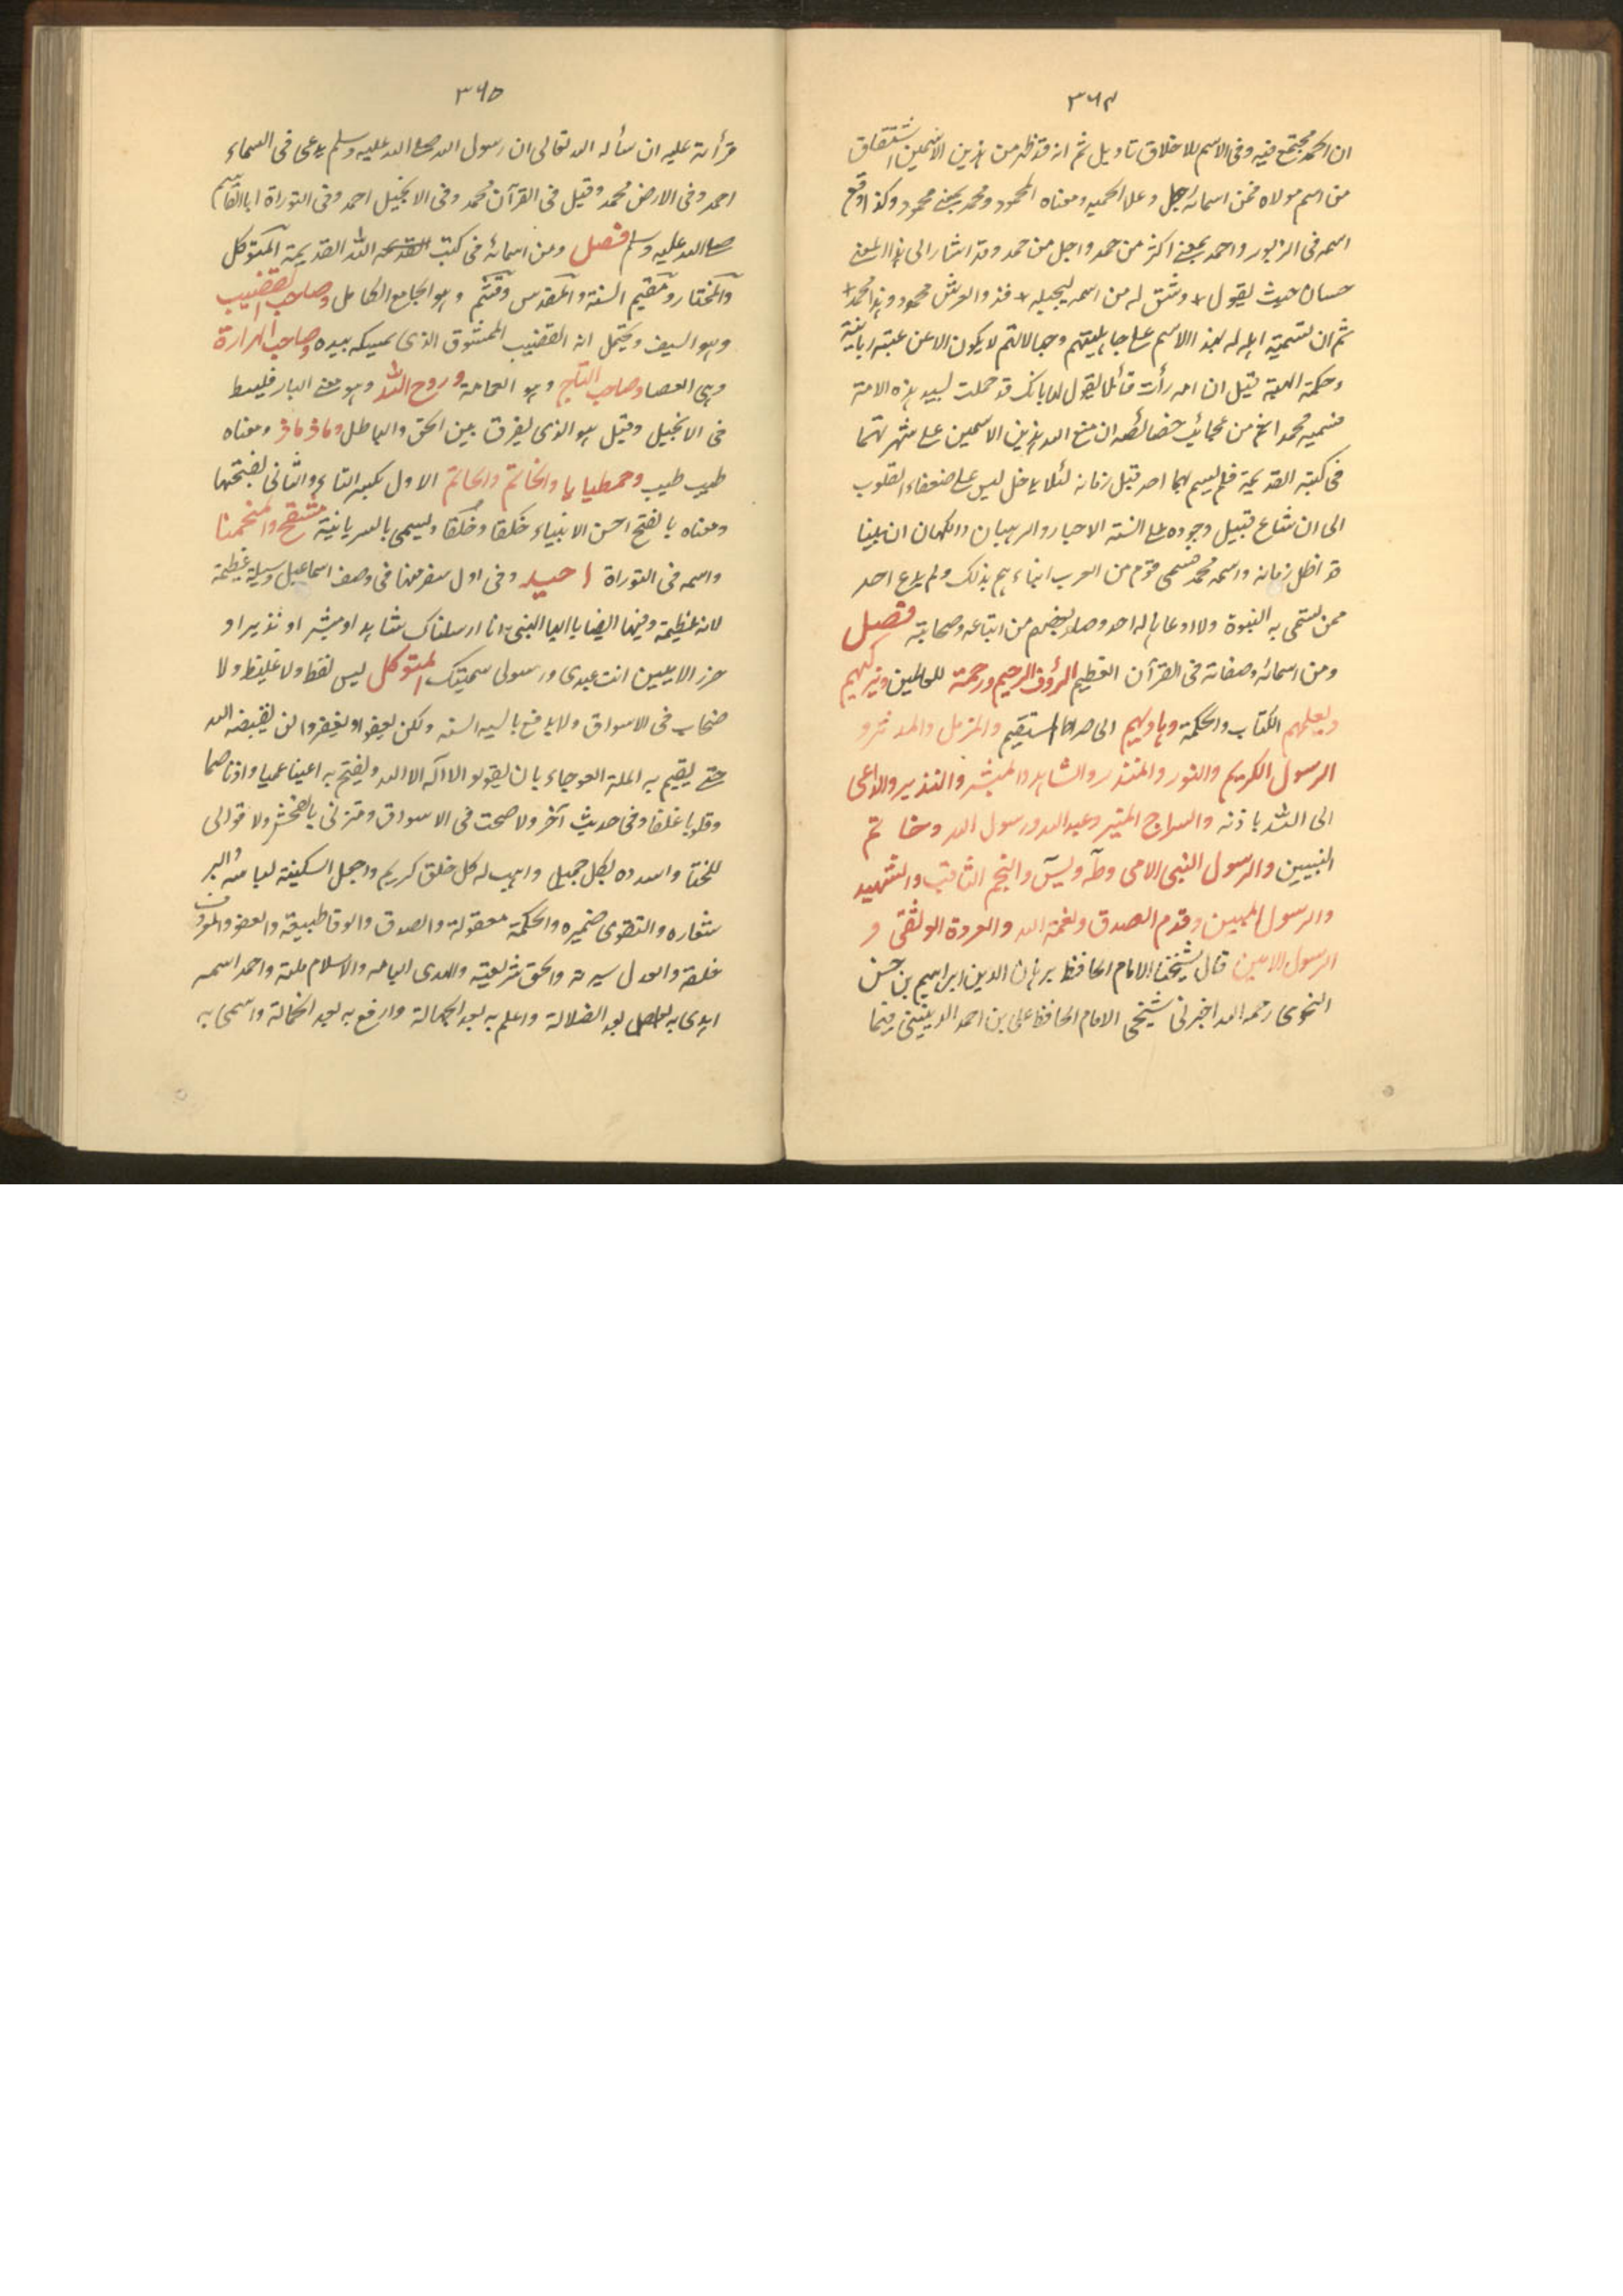 ٣٦٤
ان الحمد مجتمع فيه وفى الاسم للاخلاق تاويل ثم انه قد ظهر من هذين الاسمين اشتقاق
من اسم مولاه فمن اسمائه جل وعلا الحميد ومعناه المحمود ومحمد بمعنى محمود وكذا وقع
اسمه فى الزبور واحمد بمعنى اكثر من حمد واجل من حمد وقد اشار الى هذا المعنى
حسان حيث يقول * وشق له من اسمه ليجله * فذو العرش محمود وهذا محمد *
ثم ان تسمية اهله له بهذا الاسم على جاهليتهم وجهالاتهم لا يكون الا عن عبته ربانية
وحكمة الهية قيل ان امه رأت قائلا يقول لها بانك قد حملت بسيد هذه الامة
فسميه محمدا ثم من عجائب خصائصه ان منع الله هذين الاسمين على شهرتهما
فى كتبه القديمة فلم يسم بهما احد قبل زمانه لئلا يدخل لبس على ضعفاء القلوب
الى ان شاع قبيل وجوده على السنة الاحبار والرهبان والكهان ان نبينا
قد اظل زمانه واسمه محمد فسمى قوم من العرب ابناءهم بذلك ولم يدع احد
ممن تسمى به النبوة ولا ادعاها له احد وصار بعضهم من اتباعه وصحابته فصل
ومن اسمائه وصفاته فى القرآن العظيم الرؤف الرحيم ورحمة للعالمين ويزكيهم
ويعلمهم الكتاب والحكمة وهاديهم الى صراط مستقيم والمزمل والمدثر و
الرسول الكريم والنور والمنذر والشاهد والمبشر والنذير والداعى
الى الله باذنه والسراج المنير وعبد الله ورسول الله وخاتم
النبيين والرسول النبى الامى وطه ويس والنجم الثاقب والشهيد
والرسول المبين وقدم الصدق ونعمة الله والعروة الوثقى و
الرسول الامين قال شيخنا الامام الحافظ برهان الدين ابراهيم بن حسن
النحوى رحمه الله اخبرنى شيخى الامام الحافظ على بن احمد فيما
٣٦٥
قرأته عليه ان سأله الله تعالى ان رسول الله صلى الله عليه وسلم يدعى فى السماء
احمد وفى الارض محمد وقيل فى القرآن محمد وفى الانجيل احمد وفى التوراة ابا القاسم
صلى الله عليه وسلم فصل ومن اسمائه فى كتب الله القديمة المتوكل
والمختار ومقيم السنة والمقدس وقثم وهو الجامع الكامل وصاحب القضيب
وهو السيف ويحتمل انه القضيب الممشوق الذى يمسكه بيده وصاحب الهراوة
وهى العصا وصاحب التاج وهو العمامة وروح الله وهو معنى البارقليط
فى الانجيل وقيل هو الذى يفرق بين الحق والباطل وماذ ماذ ومعناه
طيب طيب وحمطايا والخاتم والحاتم الاول بكسر التاء والثانى بفتحها
ومعناه بالفتح احسن الانبياء خلقا وخلقا ويسمى بالسريانية مشفح والمنحمنا
واسمه فى التوراة احيد وفى اول سفر منها فى وصف اسماعيل وسيلة عظيمة
لامة عظيمة وفيها ايضا يا ايها النبى انا ارسلناك شاهدا ومبشرا ونذيرا و
حرز الاميين انت عبدى ورسولى سميتك المتوكل ليس بفظ ولا غليظ ولا
صخاب فى الاسواق ولا يدفع بالسيئة السيئة ولكن يعفو او يغفر ولن يقبضه الله
حتى يقيم به الملة العوجاء بان يقولوا لا اله الا الله ويفتح به اعينا عميا واذانا صما
وقلوبا غلفا وفى حديث آخر ولا صخب فى الاسواق ومتزى بالفحش ولا قوالى
للخنا واسدده بكل جميل واهب له كل خلق كريم واجعل السكينة لباسه والبر
شعاره والتقوى ضميره والحكمة معقولة والصدق والوفا طبيعة والعفو والمعروف
خلقه والعدل سيرته والحق شريعته والهدى امامه والاسلام ملته واحمد اسمه
اهدى به بعد الضلالة واعلم به بعد الجهالة وارفع به بعد الخمالة واسمى به